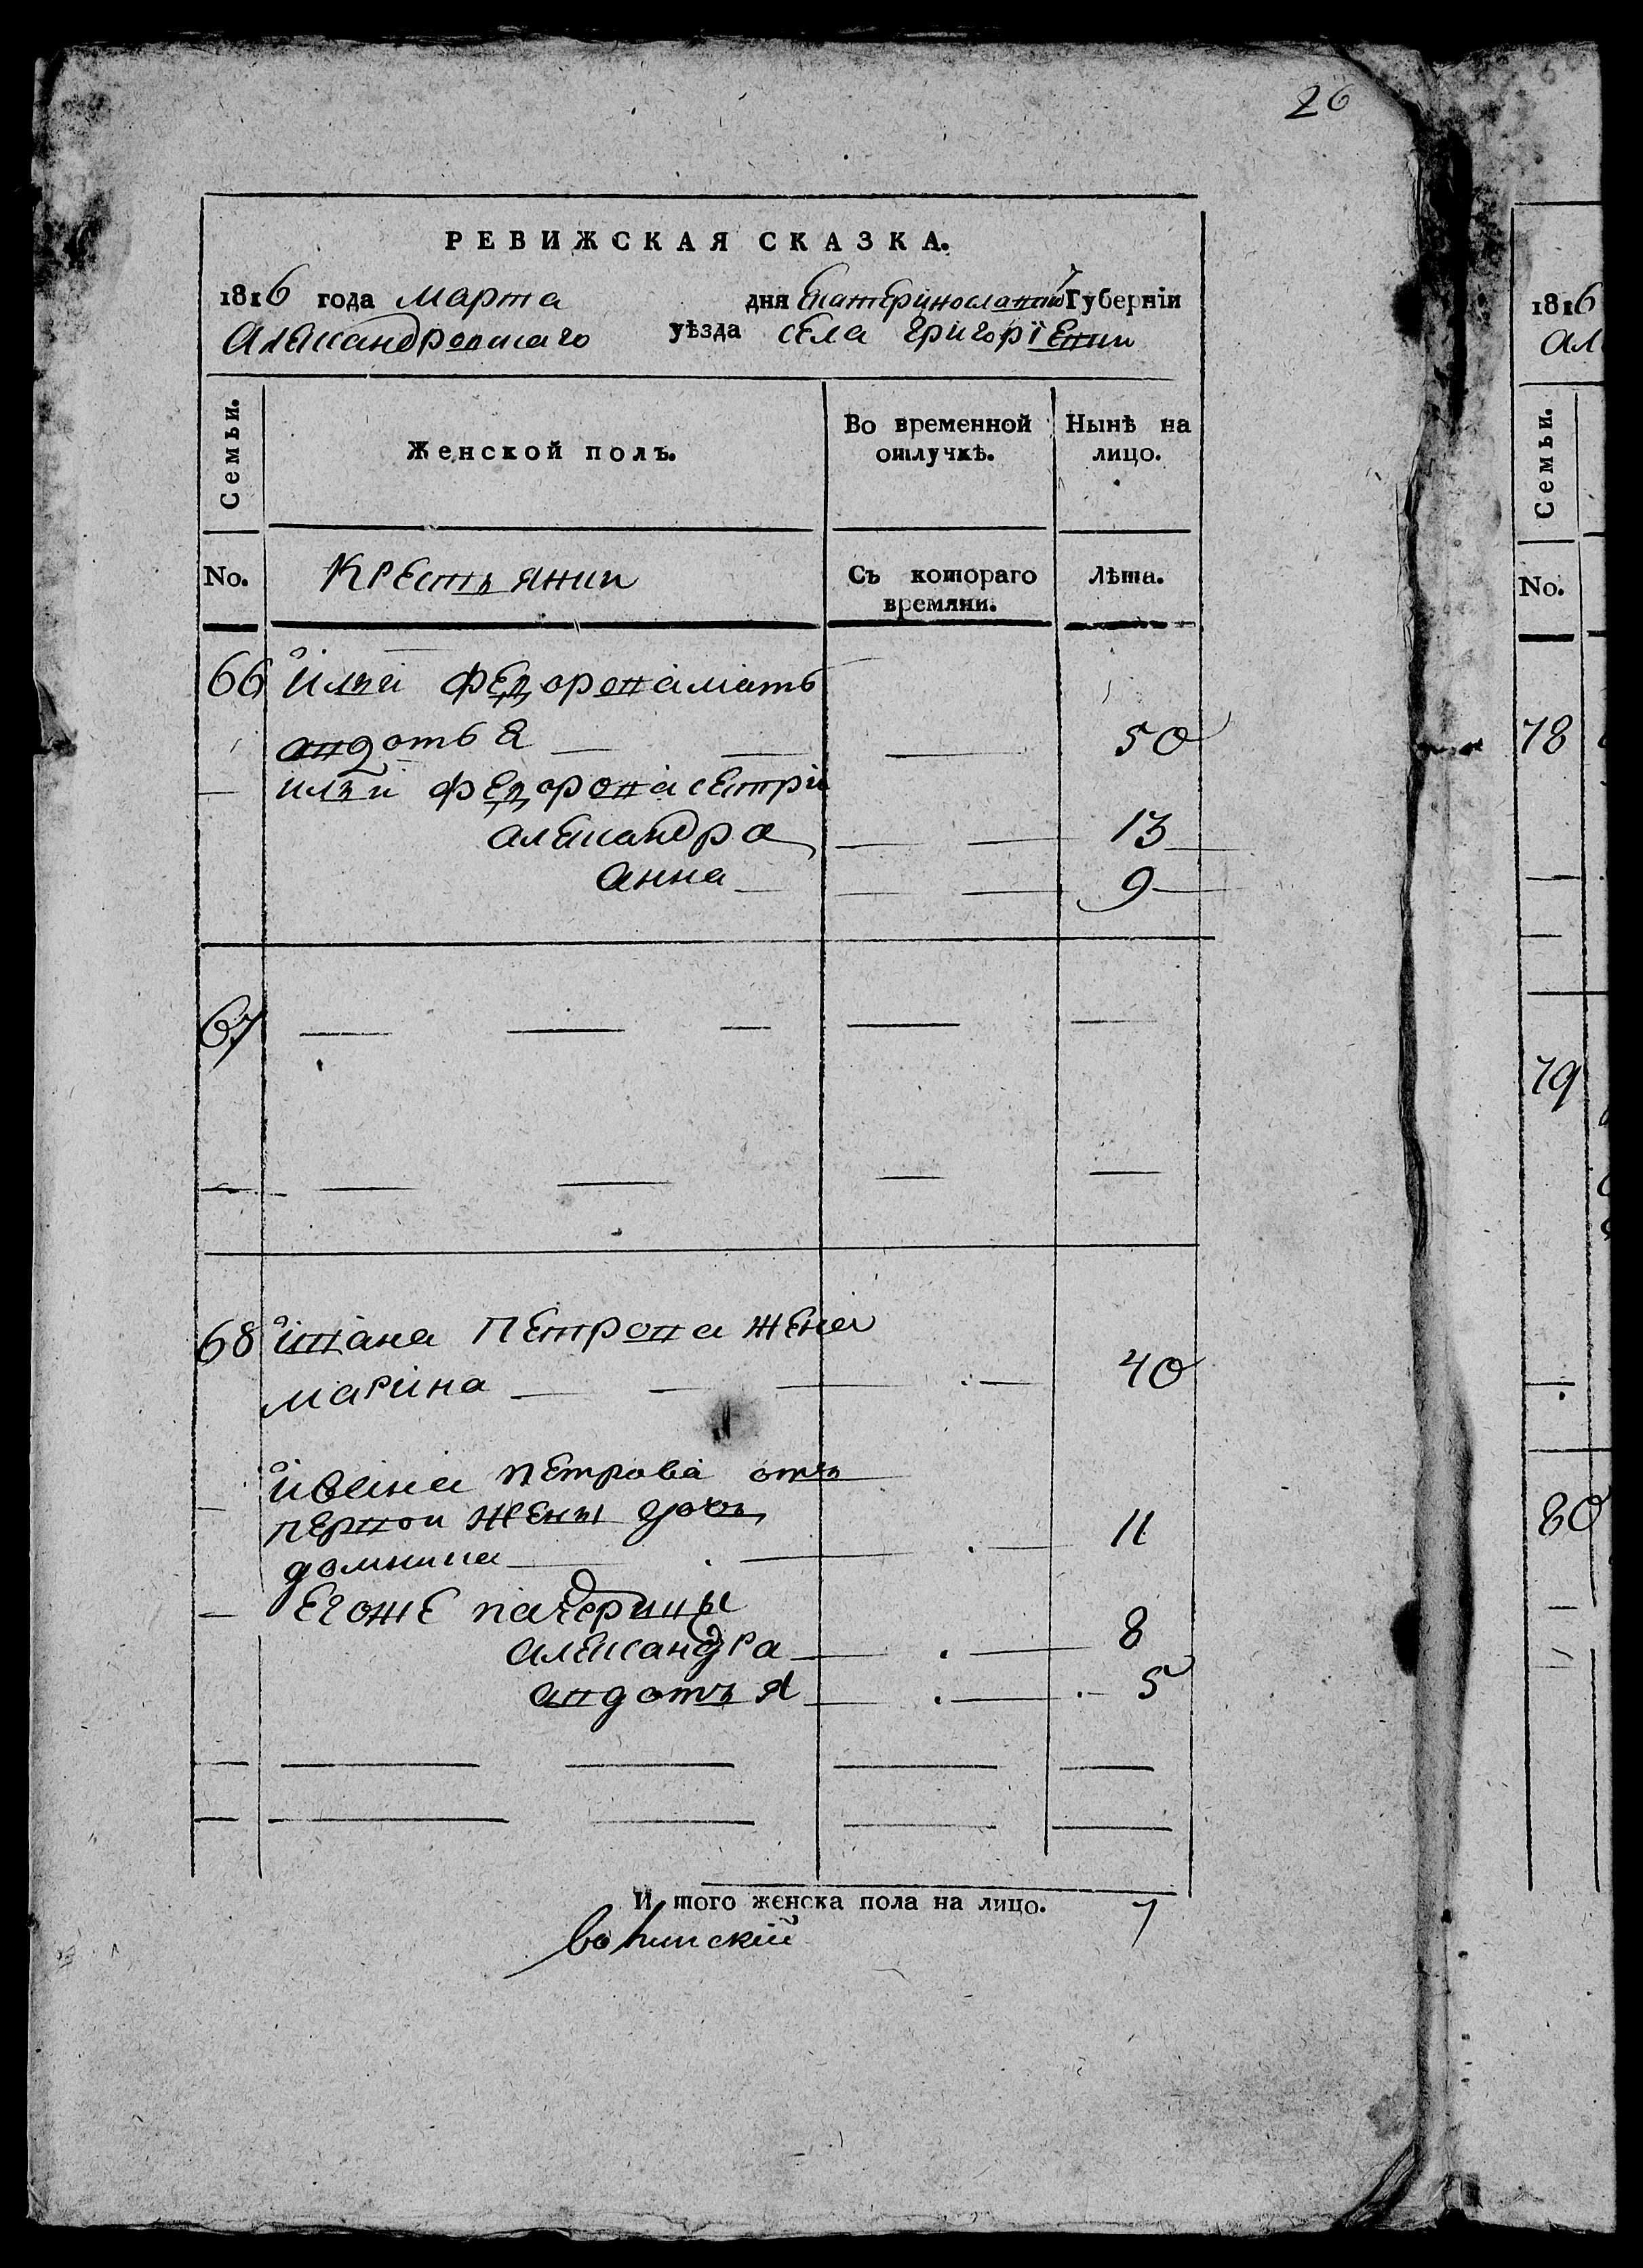 26
РЕВИЖСКАЯ СКАЗКА.
1816 года марта дня Екатеринославской Губерніи
Александровскаго уѣзда села Григорїевки
Семьи.
Женской полъ.
Во временной отлучкѣ.
Нынѣ на лицо.
No.
Крестьянки
Съ котораго времяни.
Лѣта.
66 Ильи Федорова мать
авдотья 50
Ильи Федорова сестри
александра 13
анна 9
67
68 ивана Петрова жена
марина 40
ивана петрова отъ
первой жены дочь
домникиа 11
Егоже падчерицы
александра 8
авдотья 5
И того женска пола на лицо. 7
1816
Але
Семьи.
No.
78
79
80